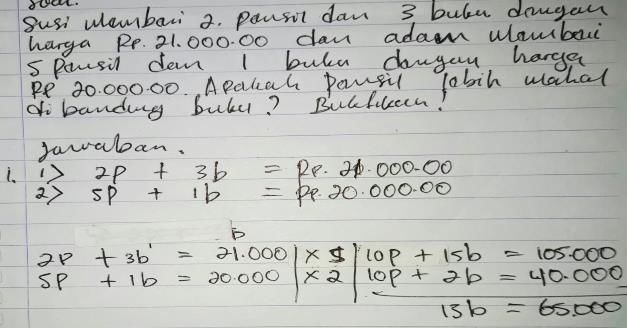 Soal.
Susi membari 2. Pansil dan 3 buku dengan
harga Rp. 21.000.00 dan adam mambari
5 Pansil dan 1 buku dangan harga
Rp 20.000.00. Apakah Pansil labih mahal
di bandung buku? Buktikan!
Jawaban.
1. 1> 2P + 3b = Rp. 21.000-00
2> 5P + 1b = Rp. 20.000.00
b
2P + 3b = 21.000 | x 5 | 10p + 15b = 105.000
5P + 1b = 20.000 | x 2 | 10p + 2b = 40.000
13b = 65.000